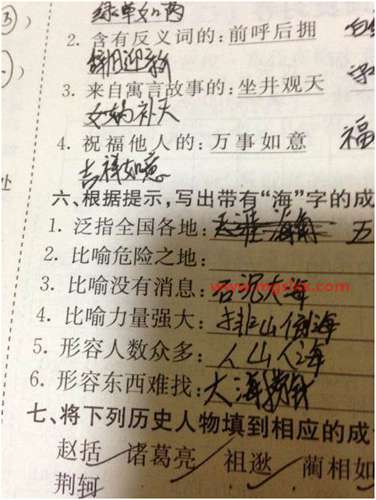 绿草如茵
2. 含有反义词的:前呼后拥
辞旧迎新
3. 来自寓言故事的:坐井观天
女娲补天
4. 祝福他人的:万事如意 福
吉祥如意
处
六、根据提示,写出带有“海”字的成
1. 泛指全国各地:天涯海角 五
2. 比喻危险之地:
3. 比喻没有消息:石沉大海
4. 比喻力量强大:排山倒海
5. 形容人数众多:人山人海
6. 形容东西难找:大海捞针
七、将下列历史人物填到相应的成
赵括 诸葛亮 祖逖 蔺相如
荆轲